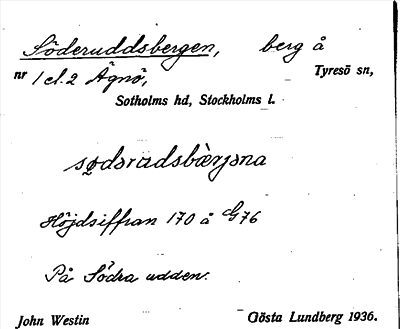 Söderuddsbergen, berg å
nr 1 el. 2 Ägnö, Tyresö sn,
Sotholms hd, Stockholms l.
Höjdsiffran 170 å G76
På Södra udden.
John Westin Gösta Lundberg 1936.